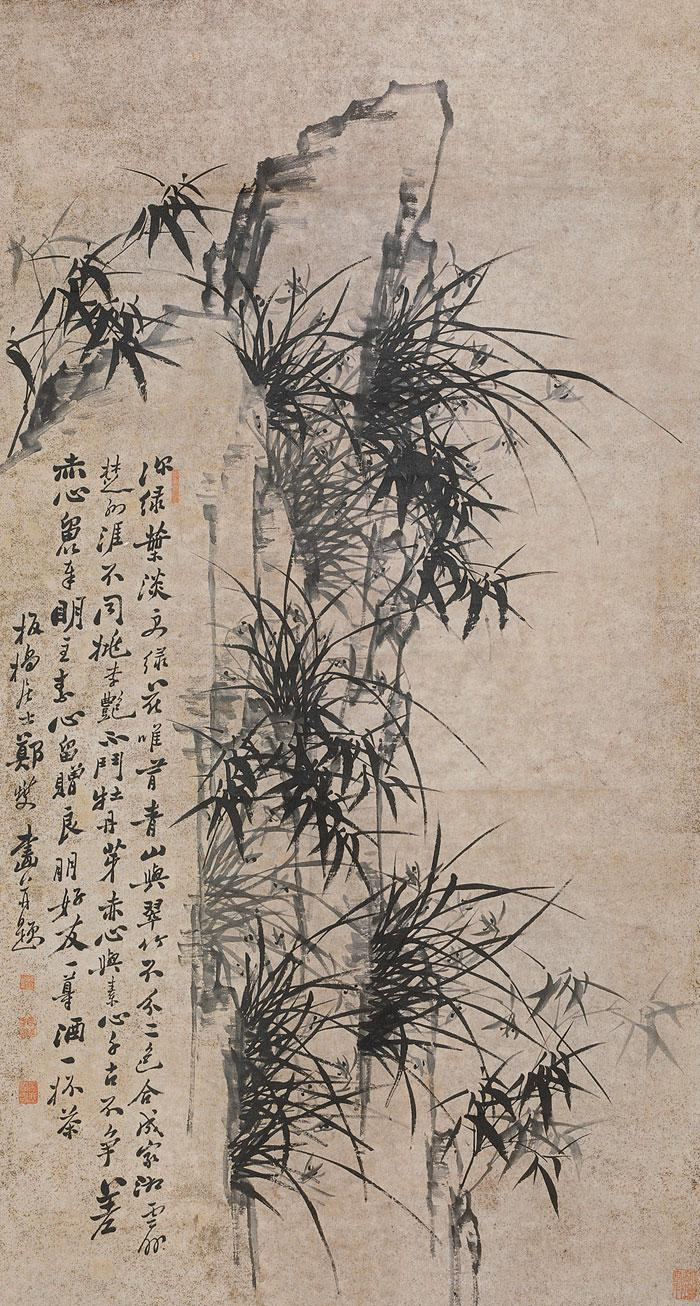 深綠葉淡綠花唯有青山與翠竹不分二色合成家湘雲
楚涯不同桃李艷不鬥牡丹芽赤心與素心千古不爭差
赤心留奉明主素心留贈良朋好友一尊酒一杯茶
板橋居士鄭燮畫并題